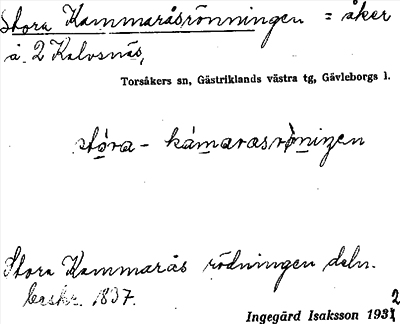 Stora Kammaråsrönningen = åker
å 2 Kalvsnäs,
Torsåkers sn, Gästriklands västra tg, Gävleborgs l.
stóra - kámarasrö̀niŋen
Stora Kammarås rödningen
beskr. 1837.
Ingegärd Isaksson 1932